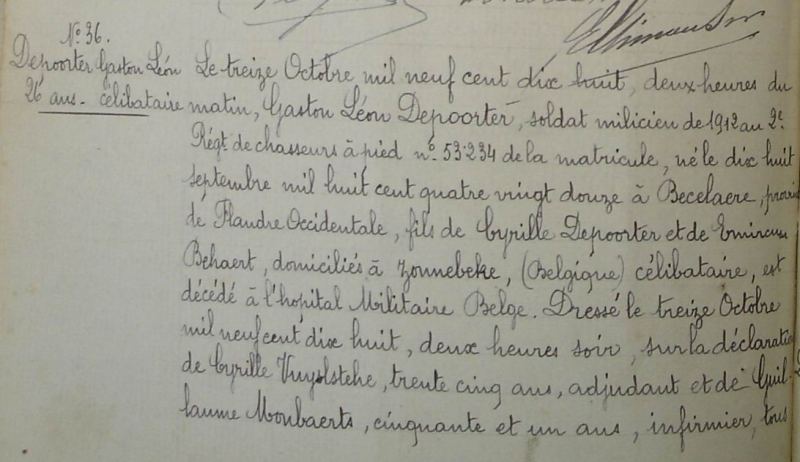 N° 36.
Depoorter Gaston Léon
26 ans - célibataire
Le treize Octobre mil neuf cent dix huit, deux heures du
matin, Gaston Léon Depoorter, soldat milicien de 1912 au 2e
Régt de chasseurs à pied n° 53.234 de la matricule, né le dix huit
septembre mil huit cent quatre vingt douze à Becelaere,
de Flandre Occidentale, fils de Cyrille Depoorter et de
Behaert, domiciliés à Zonnebeke, (Belgique) célibataire, est
décédé à l'hopital Militaire Belge. Dressé le treize Octobre
mil neuf cent dix huit, deux heures soir, sur la déclaration
de Cyrille Vuylsteke, trente cinq ans, adjudant et de Guil-
laume Monbaerts, cinquante et un ans, infirmier, tous